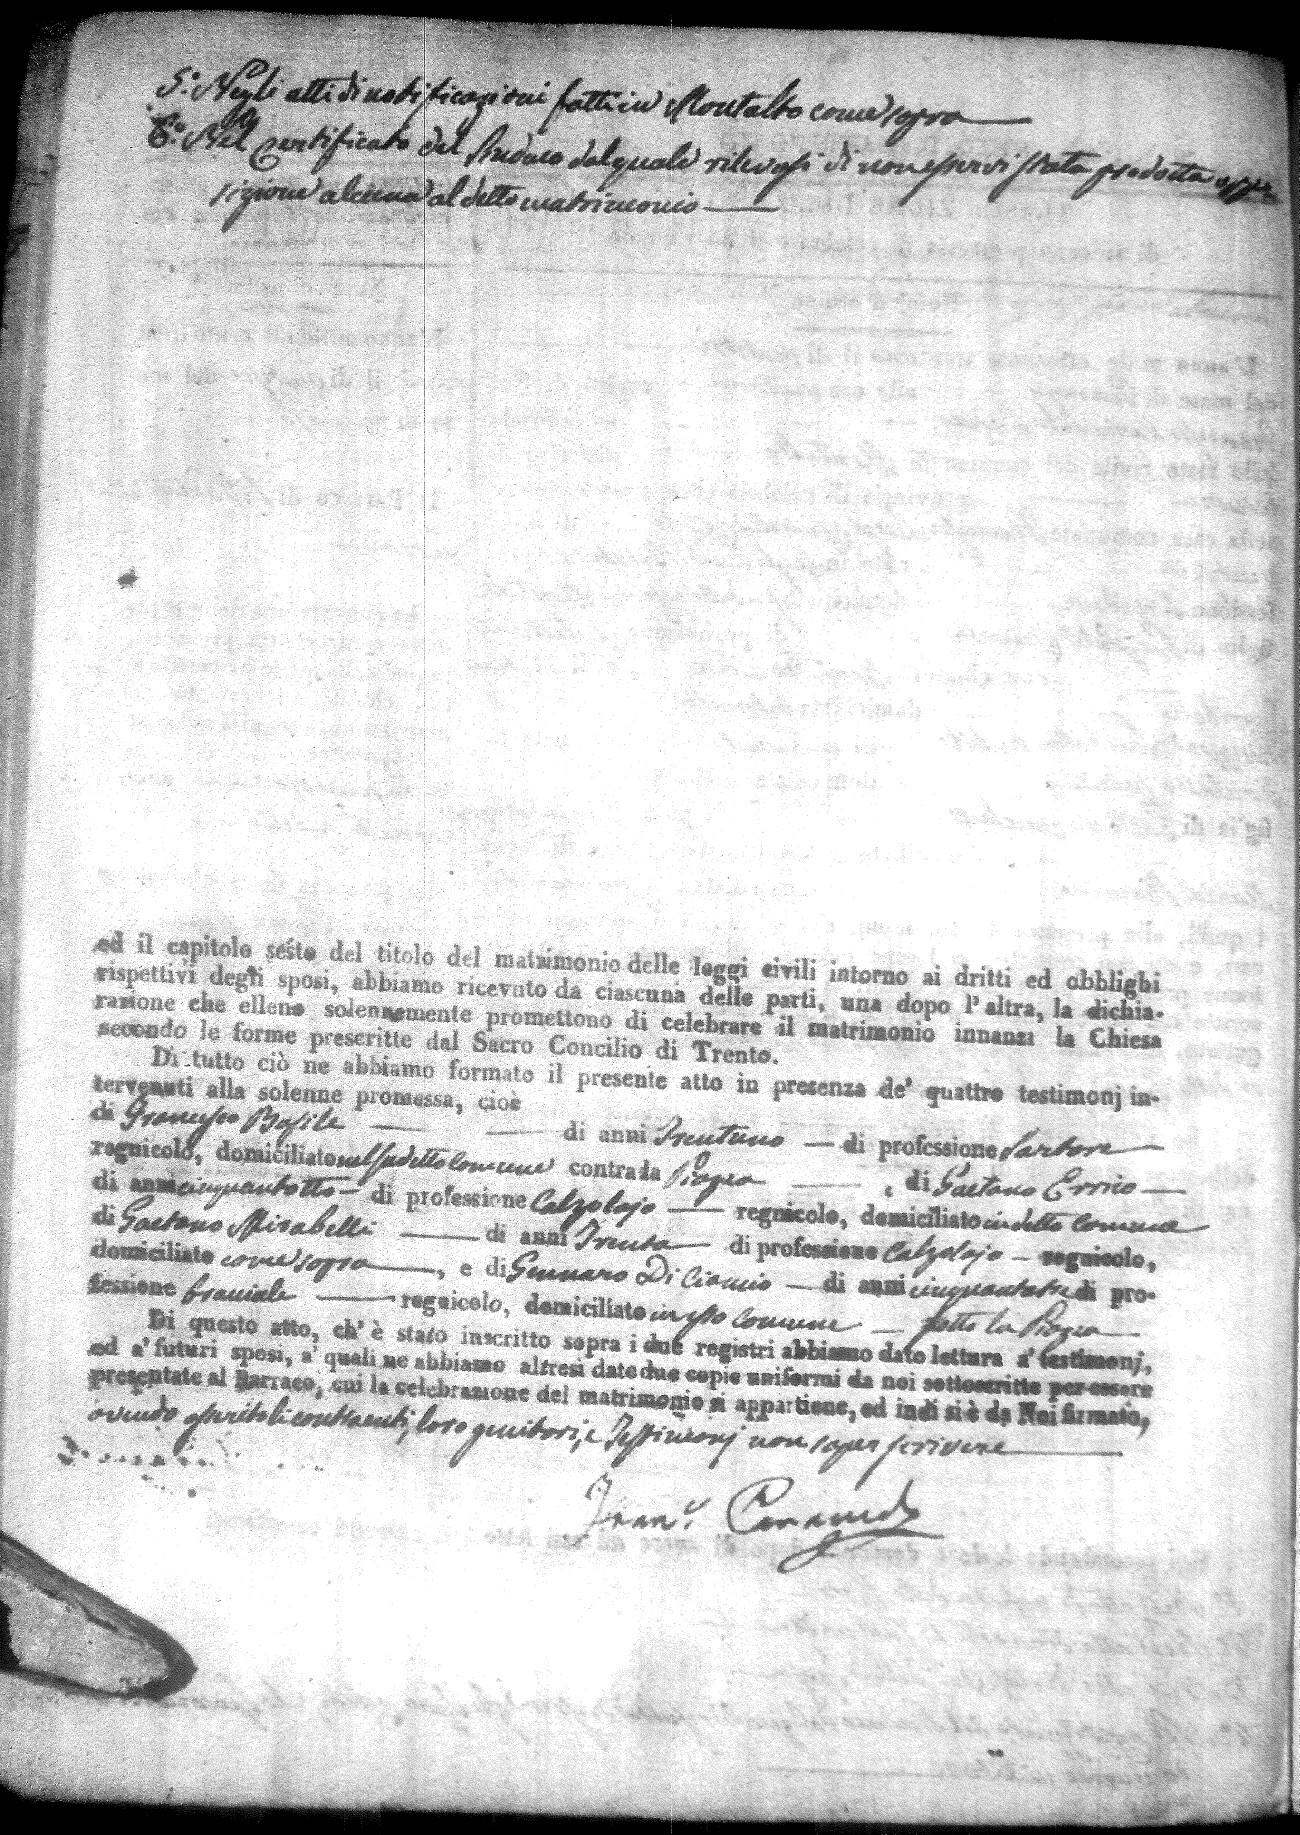 5.° Negli atti di notificazioni fatti in Montalto come sopra
6.° Nel Certificato del Sindaco dal quale rilevasi di non esservi stata prodotta oppo
sizione alcuna al detto matrimonio
ed il capitolo sesto del titolo del matrimonio delle leggi civili intorno ai dritti ed obblighi
rispettivi degli sposi, abbiamo ricevuto da ciascuna delle parti, una dopo l'altra, la dichia-
razione che elleno solennemente promettono di celebrare il matrimonio innanzi la Chiesa
secondo le forme prescritte dal Sacro Concilio di Trento.
Di tutto ciò ne abbiamo formato il presente atto in presenza de' quattro testimonj in-
tervenuti alla solenne promessa, cioè
di Francesco Basile di anni Trentuno di professione Sartore
regnicolo, domiciliato nel sudetto Comune contrada Piazza , di Gaetano Errico
di anni cinquantotto di professione Calzolajo regnicolo, domiciliato in detto Comune
di Gaetano Mirabelli di anni Trenta di professione Calzolajo regnicolo,
domiciliato come sopra , e di Gennaro Di Ciancio di anni cinquantatre di pro-
fessione braciale regnicolo, domiciliato in esso Comune sotto la Piazza
Di questo atto, ch'è stato inscritto sopra i due registri abbiamo dato lettura a' testimonj,
ed a' futuri sposi, a' quali ne abbiamo altresì date due copie uniformi da noi sottoscritte per essere
presentate al Parroco, cui la celebrazione del matrimonio si appartiene, ed indi si è da Noi firmato,
avendo asserito li contraenti, loro genitori, e Testimonj non saper scrivere